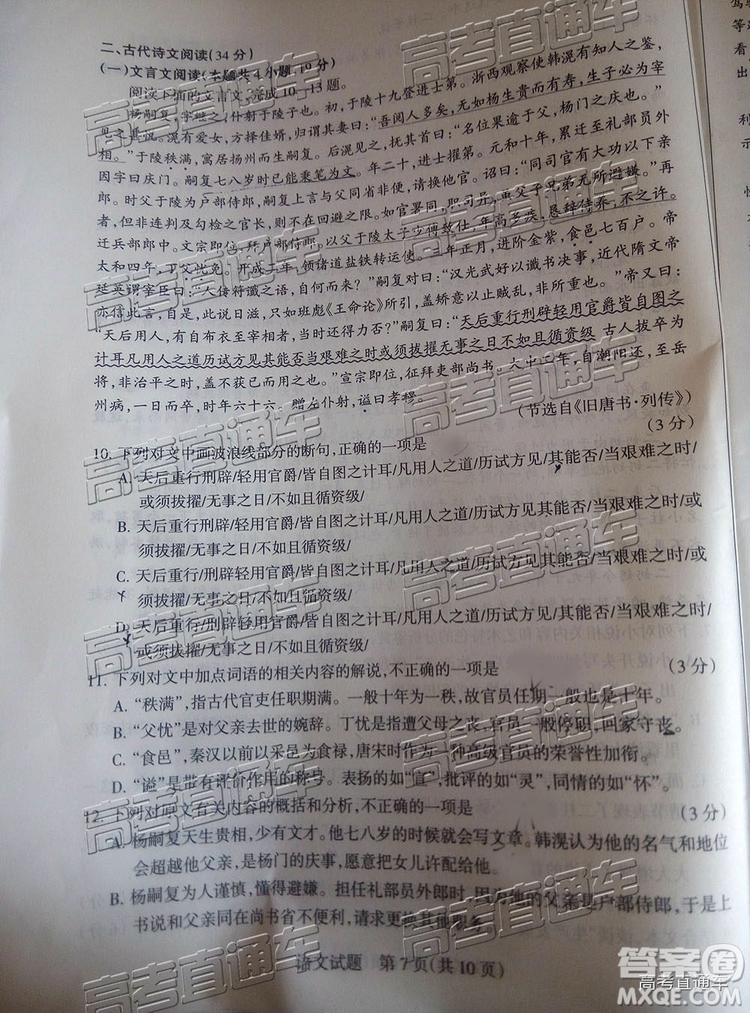 二、古代诗文阅读(34分)
(一)文言文阅读(本题共4小题,19分)
阅读下面的文言文,完成10~13题。
杨嗣复,字继之,仆射于陵子也。初,于陵十九登进士第。浙西观察使韩滉有知人之鉴,
见之甚悦。滉有爱女,方择佳婿,归谓其妻曰:“吾阅人多矣,无如杨生贵而有寿,生子必为宰
相。”于陵秩满,寓居扬州而生嗣复。后滉见之,抚其首曰:“名位果逾于父,杨门之庆也。”
因字曰庆门。嗣复七八岁时已能秉笔为文。年二十,进士擢第。元和十年,累迁至礼部员外
郎。时于陵为户部侍郎,嗣复上言与父同省非便,请换他官。诏曰:“同司官有大功以下亲
者,但非连判及勾检之官长,则不在回避之限。如官署同,职司异,虽父子兄弟无所避嫌。”再
迁兵部郎中。文宗即位,拜户部侍郎。以父于陵太子少傅致仕,年高多疾,恳辞侍养,不之许。
太和四年,丁父忧免。开成二年,领诸道盐铁转运使。三年正月,进阶金紫,食邑七百户。帝
延英谓宰臣曰:“人传符谶之语,自何而来?”嗣复对曰:“汉光武好以谶书决事,近代隋文帝
亦信此言,自此,此说日滋,只如班彪《王命论》所引,盖矫意以止贼乱,非所重也。”帝又曰:
“天后用人,有自布衣至宰相者,当时还得力否?”嗣复曰:“天后重行刑辟轻用官爵皆自图之
计耳凡用人之道历试方见其能否当艰难之时或须拔擢无事之日不如且循资级 古人拔卒为
将,非治平之时,盖不获已而用之。”宣宗即位,征拜吏部尚书。大中二年,自潮阳还,至岳
州病,一日而卒,时年六十六。赠左仆射,谥曰孝穆。
(节选自《旧唐书·列传》)
10. 下列对文中画波浪线部分的断句,正确的一项是(3分)
A. 天后重行刑辟/轻用官爵/皆自图之计耳/凡用人之道/历试方见/其能否/当艰难之时/
或须拔擢/无事之日/不如且循资级/
B. 天后重行刑辟/轻用官爵/皆自图之计耳/凡用人之道/历试方见其能否/当艰难之时/或
须拔擢/无事之日/不如且循资级/
C. 天后重行/刑辟轻用官爵/皆自图之计耳/凡用人之道/历试方见其能否/当艰难之时/或
须拔擢/无事之日/不如且循资级/
D. 天后重行/刑辟轻用官爵/皆自图之计耳/凡用人之道/历试方见/其能否/当艰难之时/
或须拔擢/无事之日/不如且循资级/
11. 下列对文中加点词语的相关内容的解说,不正确的一项是(3分)
A. “秩满”,指古代官吏任职期满。一般十年为一秩,故官员任期一般是十年。
B. “父忧”是对父亲去世的婉辞。丁忧是指遭父母之丧,官员一般停职,回家守丧。
C. “食邑”,秦汉以前以采邑为食禄,唐宋时作为一种高级官员的荣誉性加衔。
D. “谥”是带有评价作用的称号。表扬的如“宣”,批评的如“灵”,同情的如“怀”。
12. 下列对原文有关内容的概括和分析,不正确的一项是(3分)
A. 杨嗣复天生贵相,少有文才。他七八岁的时候就会写文章。韩滉认为他的名气和地位
会超越他父亲,是杨门的庆事,愿意把女儿许配给他。
B. 杨嗣复为人谨慎,懂得避嫌。担任礼部员外郎时,因为他的父亲是户部侍郎,于是上
书说和父亲同在尚书省不便利,请求更换其他职务。
语文试题 第7页(共10页)
高考直通车
答案圈
MXQE.COM
高考直通车